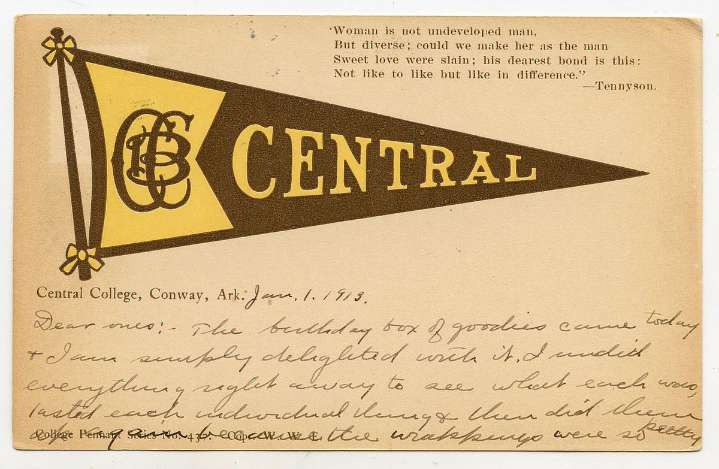 "Woman is not undeveloped man,
But diverse; could we make her as the man
Sweet love were slain; his dearest bond is this:
Not like to like but like in difference."
—Tennyson.
CENTRAL
Central College, Conway, Ark. Jan. 1. 1913.
Dear ones:- The birthday box of goodies came today
+ I am simply delighted with it. I undid
everything right away to see what each was,
tasted each individual thing & then did them
up again because the wrappings were so pretty
College Pennant Series No. 430.